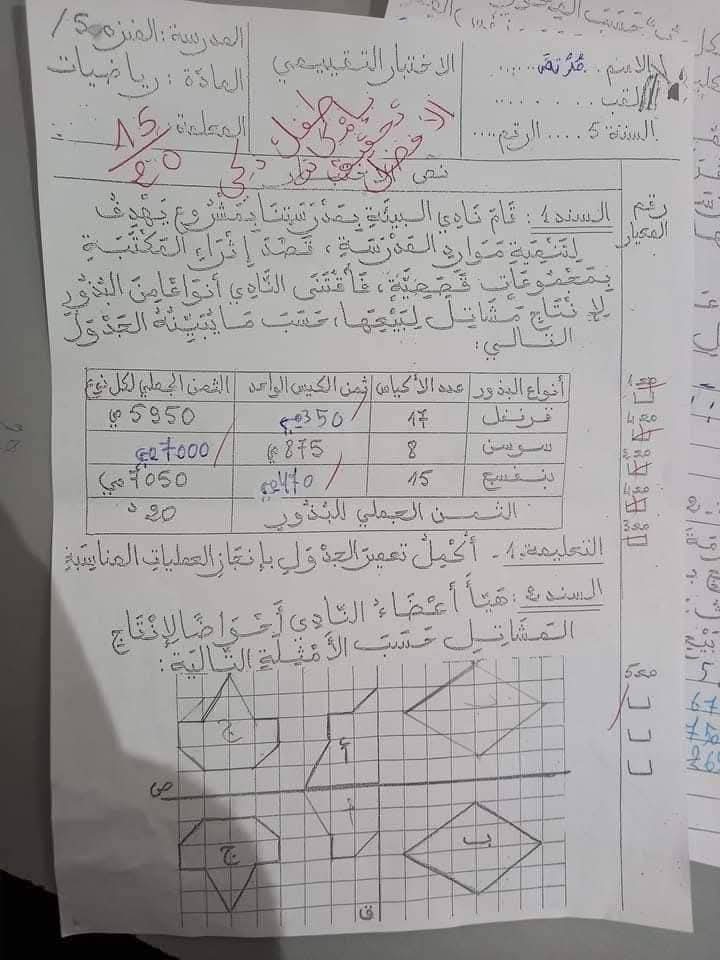 المدرسة : الفنزه 5 /
المادة : رياضيات
المعلمة :
الاختبار التقييمي
الاسم .
اللقب . . . . . .
السنة 5 .... الرقم ....
15
20
نص
رقم المعيار
السند 1 : قَامَ نَادِي البيئَةِ بِمَدْرَسَتِنَا بِمَشْرُوعٍ يَهْدِفُ
لِتَنْمِيَةِ مَوَارِدِ المَدْرَسَةِ ، قَصْدَ إثْرَاءِ المَكْتَبَةِ
بِمَجْمُوعَاتٍ قَصَصِيَّةٍ، فَاقْتَنَى النَّادِي أنْوَاعًا مِنَ البُذُورِ
لإِنْتَاجِ مَشَاتِلَ لِبَيْعِهَا، حَسَبَ مَا يُبَيِّنُهُ الجَدْوَلُ
التَّالِي:
أنواع البذور	عدد الأكياس	ثمن الكيس الواحد	الثمن الجملي لكل نوع
قرنفل	17	350 مي	5950 مي
سوسن	8	875 مي	7000 مي
بنفسج	15	470 مي	7050 مي
الثمن الجملي للبذور	20 د
التعليمة 1 - أكْمِلْ تعميرَ الجدْوَلِ بإنجازِ العمليّاتِ المناسبَةِ
السند 2 : هَيَّأَ أعْضَاءُ النَّادِي أحْوَاضًا لإِنْتَاجِ
المَشَاتِلِ حَسَبَ الأَمْثِلَةِ التَّالِيَةِ :
مع1
مع4
مع2
مع4
مع3
مع5
ج
أ
ب
ص
ج
أ
ب
ق